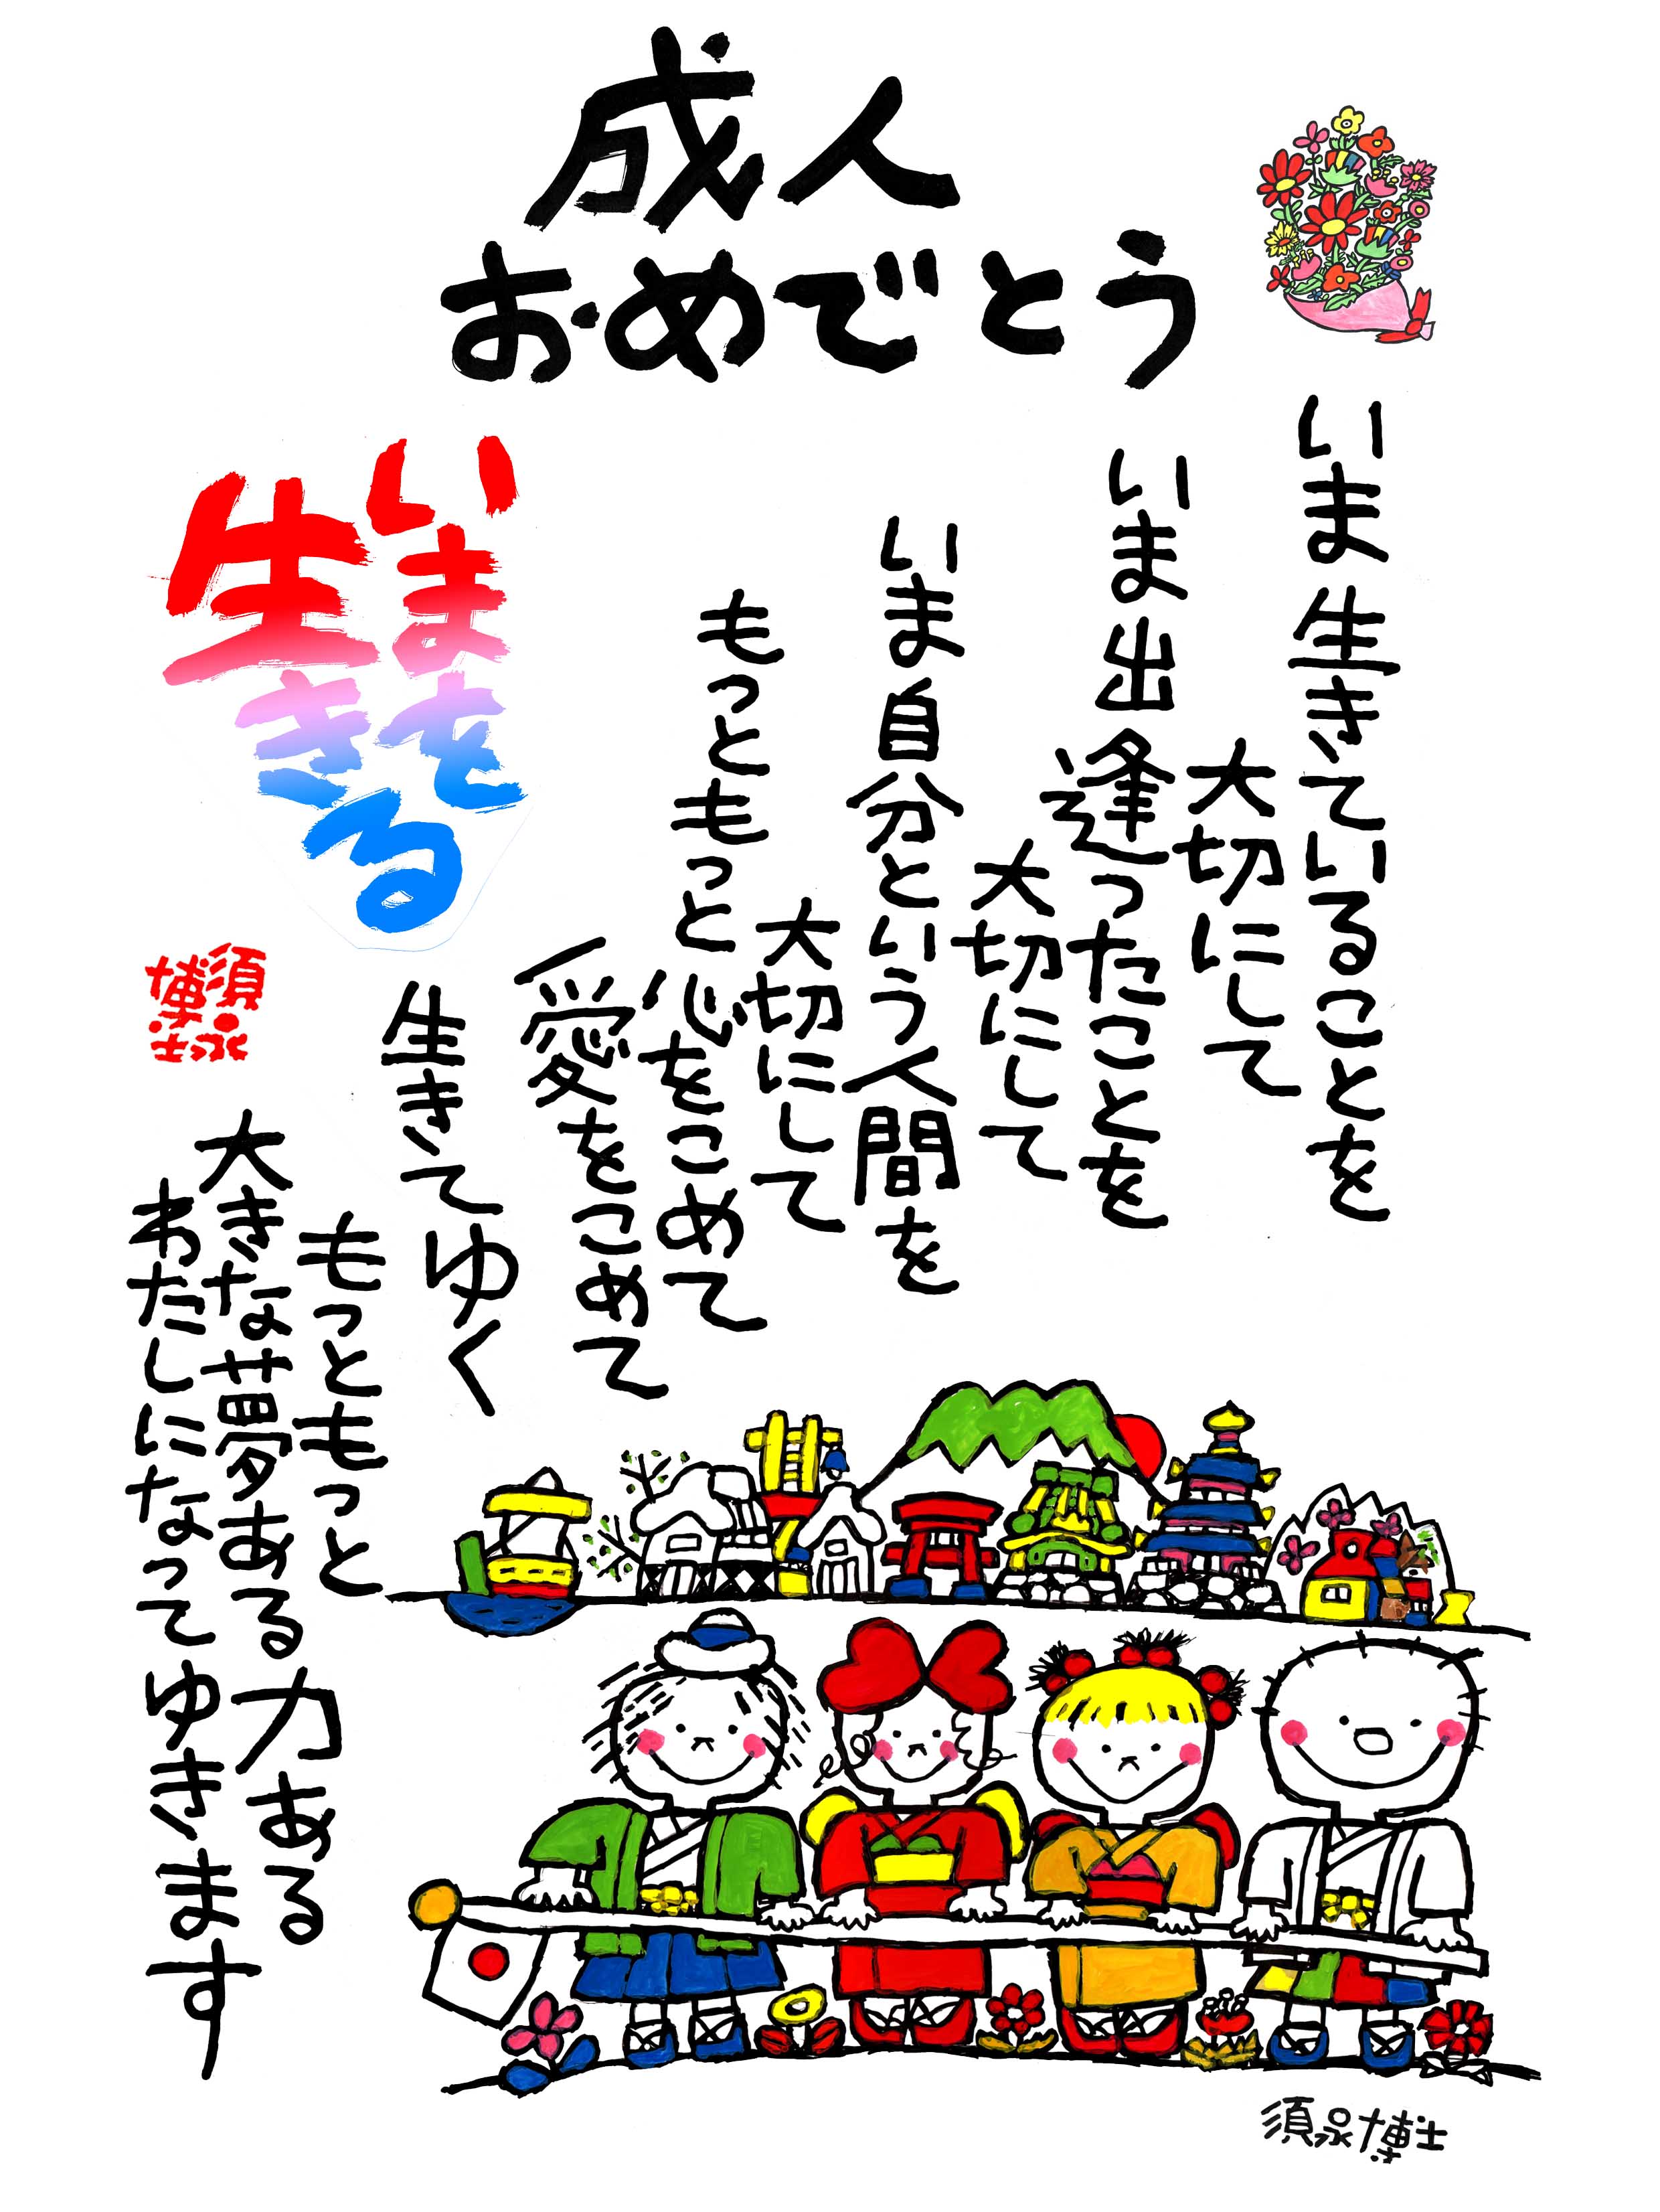 成人
おめでとう
いま生きていることを
大切にして
いま出逢ったことを
大切にして
いま自分という人間を
大切にして
もっともっと心をこめて
愛をこめて
生きてゆく
いまを
生きる
須永
博士
もっともっと
大きな夢ある力ある
わたしになってゆきます
須永博士